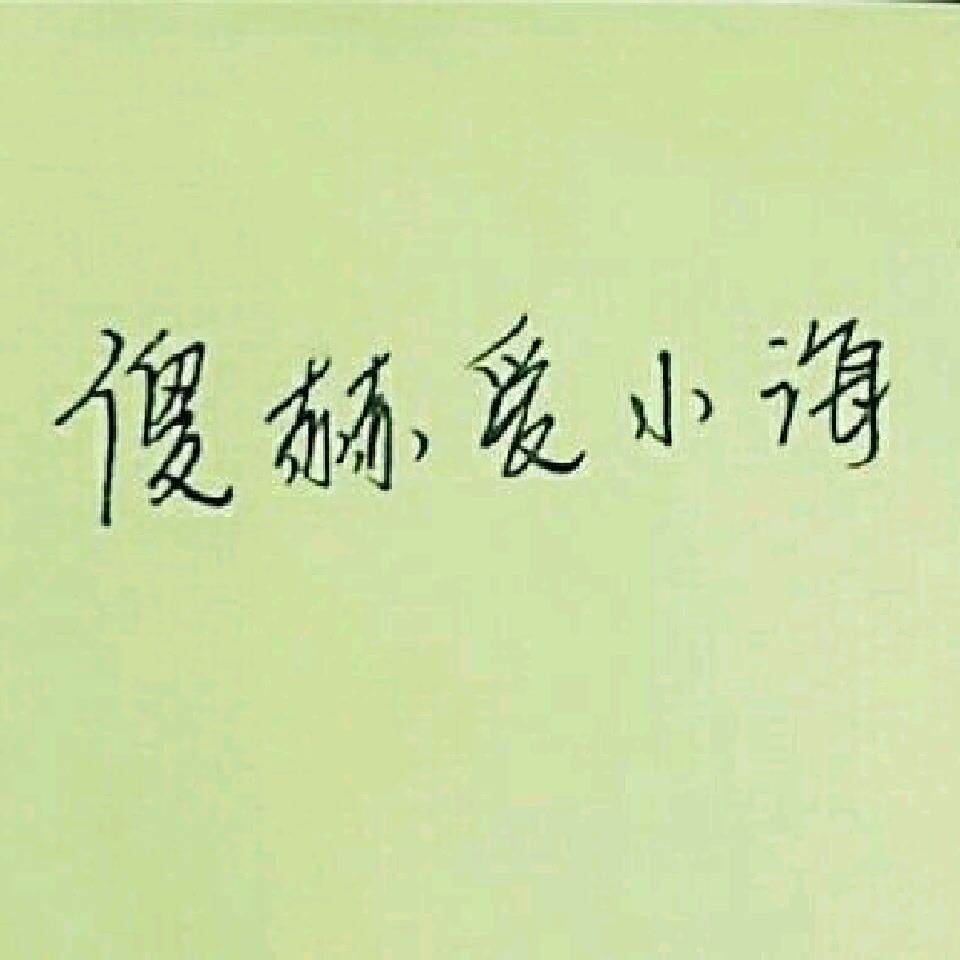 傻赫爱小海